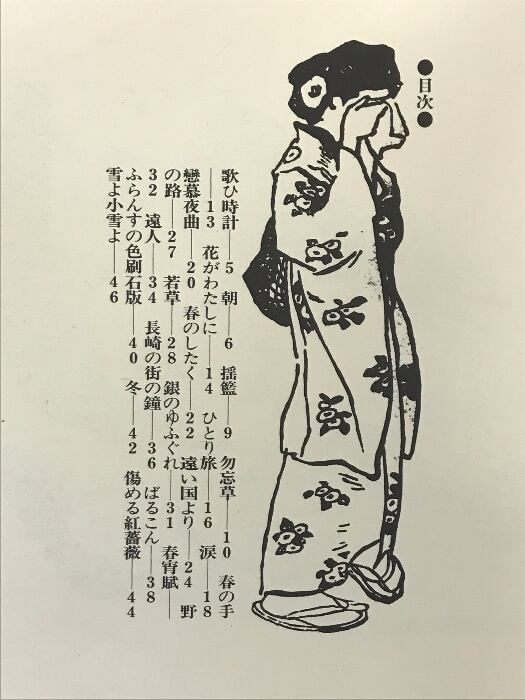 ●目次●
歌ひ時計──5 朝──6 揺籃──9 勿忘草──10 春の手
──13 花がわたしに──14 ひとり旅──16 涙──18
戀慕夜曲──20 春のしたく──22 遠い国より──24 野
の路──27 若草──28 銀のゆふぐれ──31 春宵賦──
32 遠人──34 長崎の街の鐘──36 ばるこん──38
ふらんすの色刷石版──40 冬──42 傷める紅薔薇──44
雪よ小雪よ──46